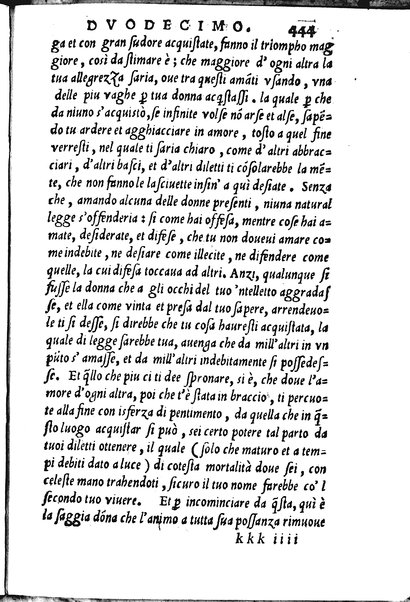 DVODECIMO. 444
ga et con gran sudore acquistate, fanno il triompho mag
giore, così da stimare è; che maggiore d'ogni altra la
tua allegrezza saria, oue tra questi amāti vsando, vna
delle piu vaghe ꝑ tua donna acq̄stassi. la quale ꝑ che
da niuno s'acquistò, se infinite volse nō arse et alse, sapē-
do tu ardere et agghiacciare in amore, tosto a quel fine
verresti, nel quale ti saria chiaro, come d'altri abbrac-
ciari, d'altri basci, et d'altri diletti ti cōsolarebbe la mē-
te, che non fanno le lasciuette insin' a quì desiate. Senza
che, amando alcuna delle donne presenti, niuna natural
legge s'offenderia: sì come hai offesa, mentre cose hai a-
mate, desiderate, et difese, che tu non doueui amare co=
me indebite, ne desiare come illecite, ne difendere come
quelle, la cui difesa toccaua ad altri. Anzi, qualunque si
fusse la donna che a gli occhi del tuo 'ntelletto aggradas
se, et ella come vinta et presa dal tuo sapere, arrendeuo-
le ti si desse, si direbbe che tu cosa hauresti acquistata, la
quale di legge sarebbe tua, auenga che da mill'altri in vn
pūto s'amasse, et da mill'altri indebitamente si possedes-
se. Et q̄llo che piu ci ti dee spronare, si è, che doue l'a=
more d'ogni altra, poi che t'è stata in braccio, ti percuo-
te alla fine con isferza di pentimento, da quella che in q̄-
sto luogo acquistar si può, sei certo potere tal parto da
tuoi diletti ottenere, il quale (solo che maturo et a tem-
pi debiti dato a luce) di cotesta mortalità doue sei, con
celeste mano trahendoti, sicuro il tuo nome farebbe co'l
secondo tuo viuere. Et ꝑ incominciare da q̄sta, quì è
la saggia dōna che l'animo a tutta sua possanza rimuoue
kkk iiii